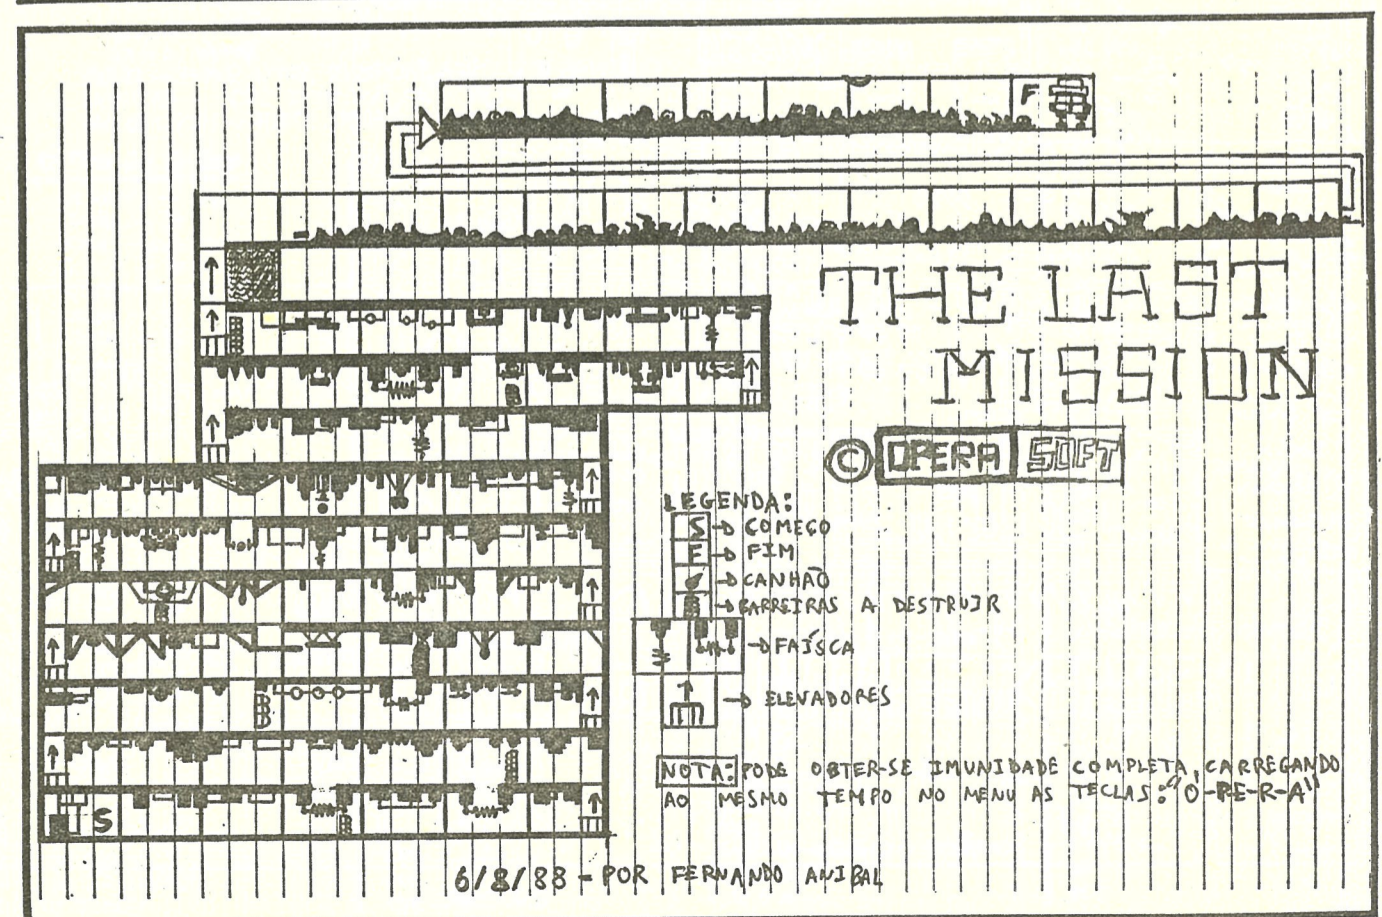 F
THE LAST
MISSION
© OPERA SOFT
LEGENDA:
S → COMEÇO
F → FIM
→ CANHÃO
→ BARREIRAS A DESTRUIR
→ FAÍSCA
→ ELEVADORES
NOTA: PODE OBTER-SE IMUNIDADE COMPLETA, CARREGANDO
AO MESMO TEMPO NO MENU AS TECLAS: "O-PE-R-A"
S
6/8/88 - POR FERNANDO ANIBAL